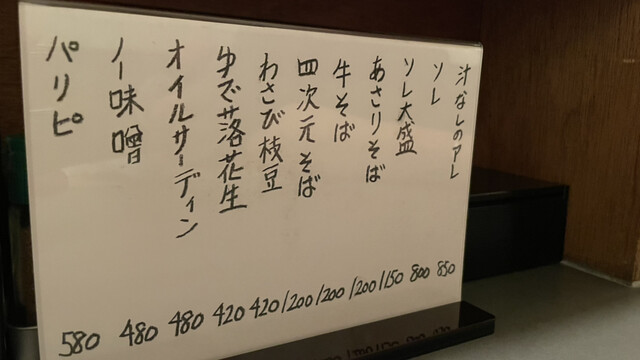 汁なしのアレ 850
ソレ 800
ソレ大盛 1150
あさりそば 1200
牛そば 1200
四次元そば 1200
わさび枝豆 420
ゆで落花生 420
オイルサーディン 480
ノー味噌 480
パリピ 580